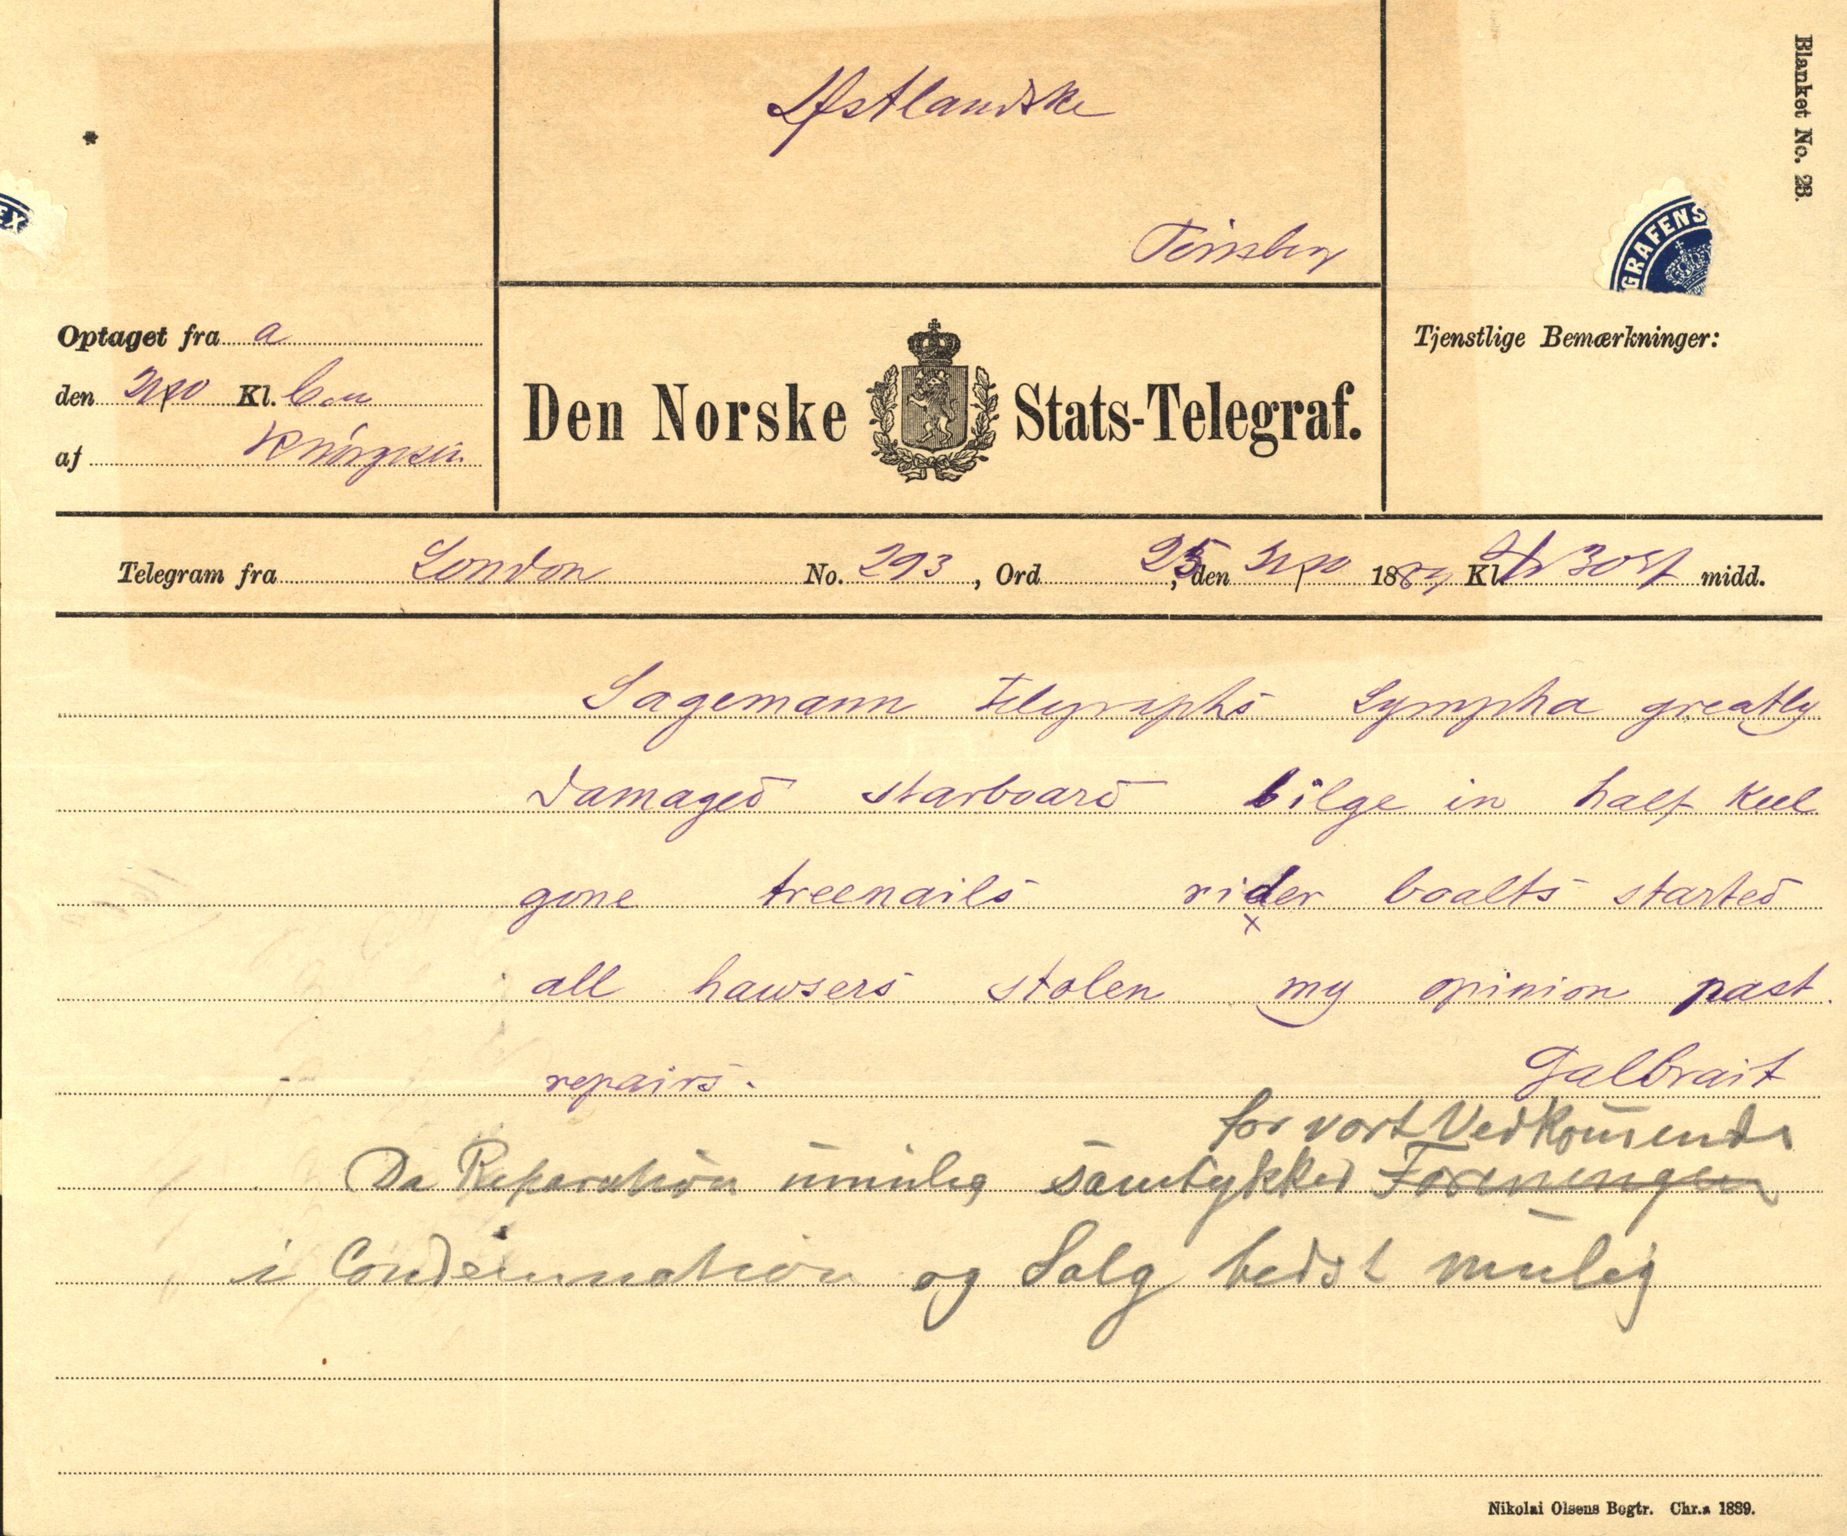 Blanket No. 28.
Østlandske
Tönsberg
GRAFENS
EX
Optaget fra a
den 31/10 Kl.
af K Jörgensen
Den Norske Stats-Telegraf.
Tjenstlige Bemærkninger:
Telegram fra London No. 293, Ord 25, den 31/10 1889 Kl. 30 midd.
Sagemann telegraphs Sympha greatly
damaged starboard bilge in half keel
gone treenails rider boalts started
all hawsers stolen my opinion past
repairs. Galbrait
for vort Vedkommende
Da Reparation umulig samtykker Foreningen
i Condemnation og Salg bedst mulig
Nikolai Olsens Bogtr. Chr.a 1889.